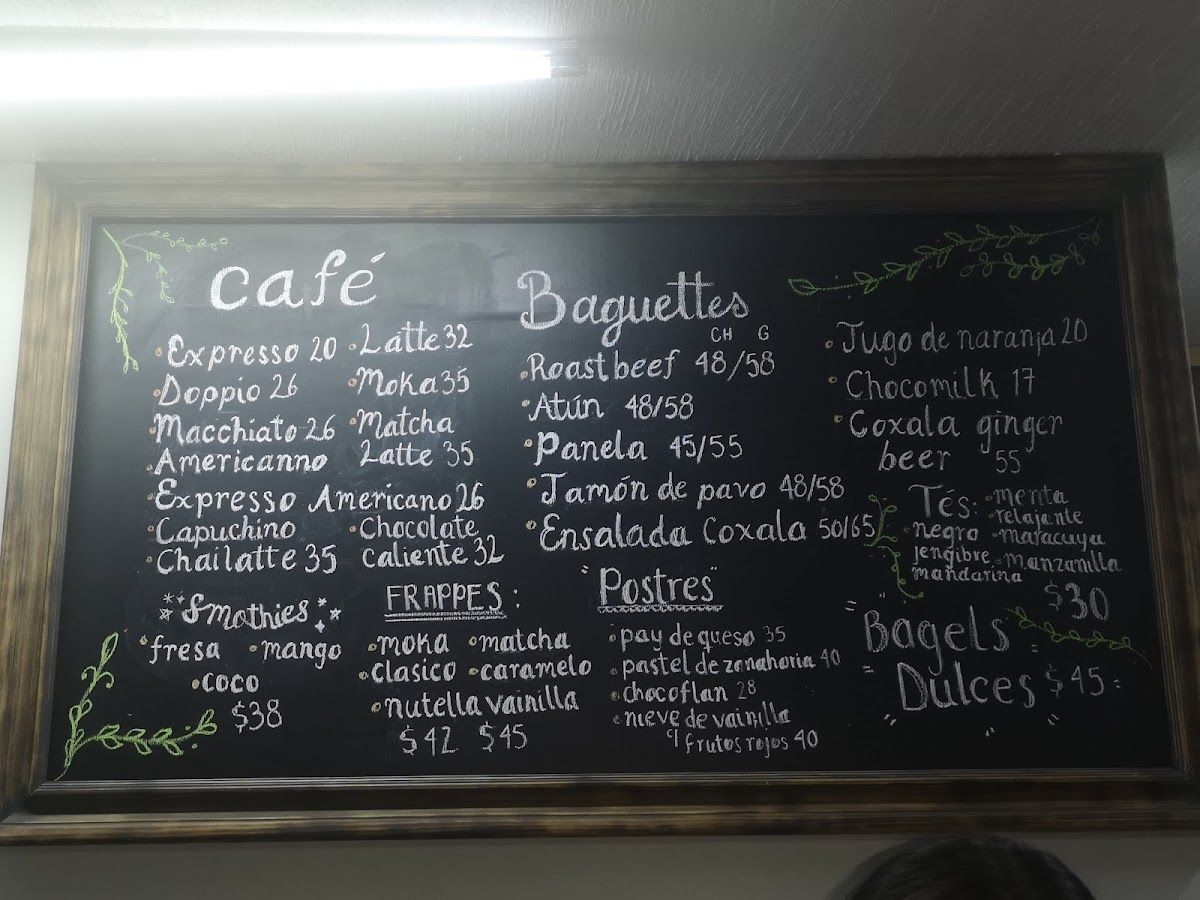 café
Expresso 20
Doppio 26
Macchiato 26
Americanno
Expresso Americano 26
Capuchino
Chailatte 35
Latte 32
Moka 35
Matcha
Latte 35
Chocolate
caliente 32
Smothies
fresa mango
coco
$38
FRAPPES:
moka matcha
clasico caramelo
nutella vainilla
$42 $45
Baguettes
CH G
Roastbeef 48/58
Atún 48/58
Panela 45/55
Jamón de pavo 48/58
Ensalada Coxala 50/65
"Postres"
pay de queso 35
pastel de zanahoria 40
chocoflan 28
nieve de vainilla
c/ frutos rojos 40
Jugo de naranja 20
Chocomilk 17
Coxala ginger
beer 55
Tés: menta
relajante
negro maracuya
jengibre manzanilla
mandarina
$30
Bagels
Dulces $45